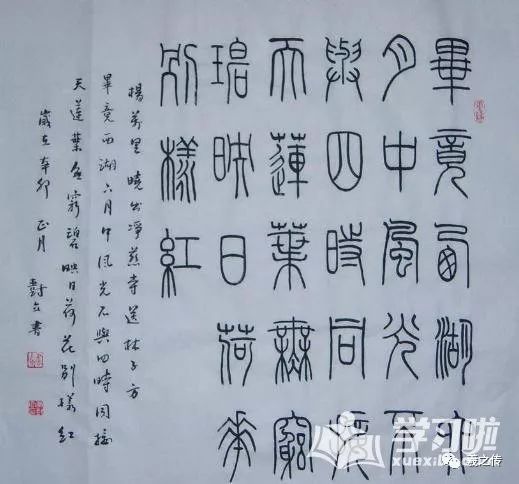 畢竟西湖六
月中風光不
與四時同接
天蓮葉無窮
碧映日荷花
別樣紅
楊萬里曉出淨慈寺送林子方
畢竟西湖六月中風光不與四時同接
天蓮葉無窮碧映日荷花別樣紅
歲在辛卯正月 書
学习啦
羲之传